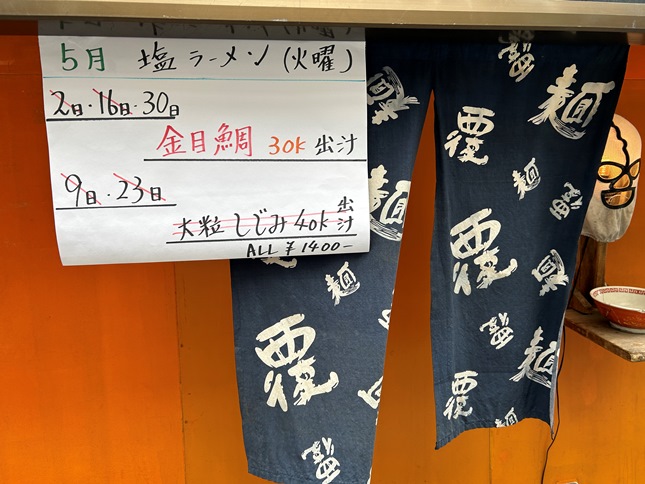 5月 塩ラーメン (火曜)
2日・16日・30日
金目鯛 30k 出汁
9日・23日
大粒しじみ 40k 出汁
ALL ¥1400-
麺 覆 麺
覆
麺
麺
覆
麺
麺
覆 麺
覆